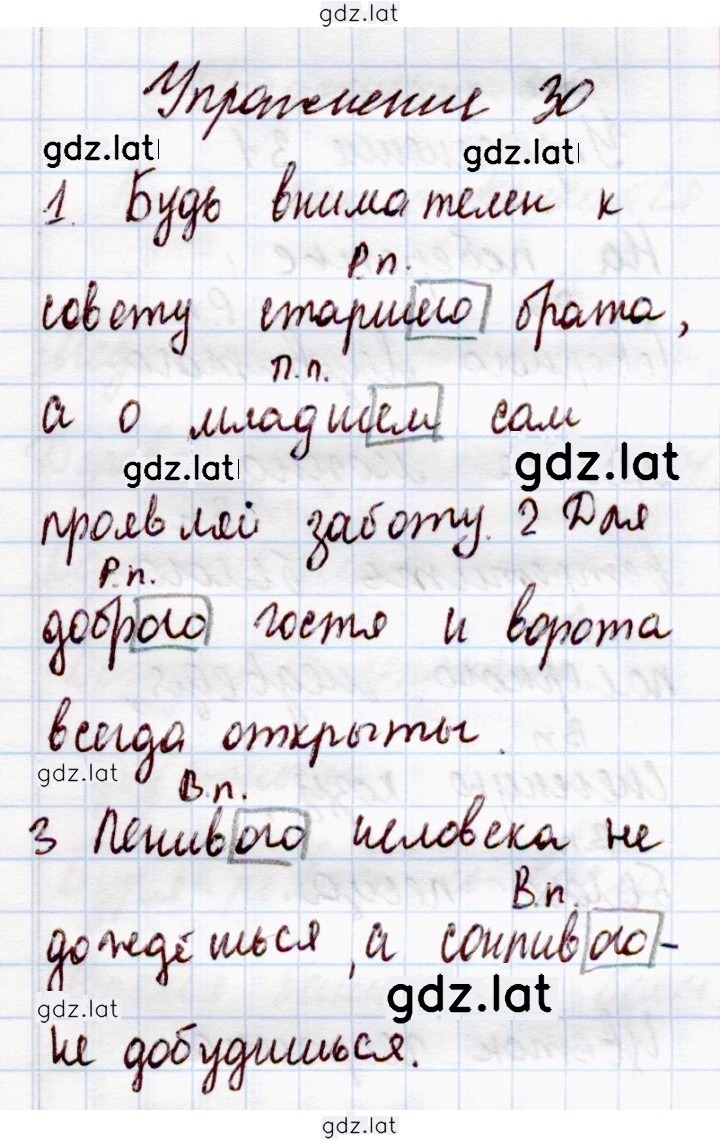 gdz.lat
Упражнение 30
gdz.lat gdz.lat
1. Будь внимателен к
Р.п.
совету старшего брата,
П.п.
а о младшем сам
gdz.lat gdz.lat
проявляй заботу. 2 Для
Р.п.
доброго гостя и ворота
всегда открыты.
gdz.lat
В.п.
3 Ленивого человека не
В.п.
дождёшься, а сонливого -
gdz.lat gdz.lat
не добудишься.
gdz.lat